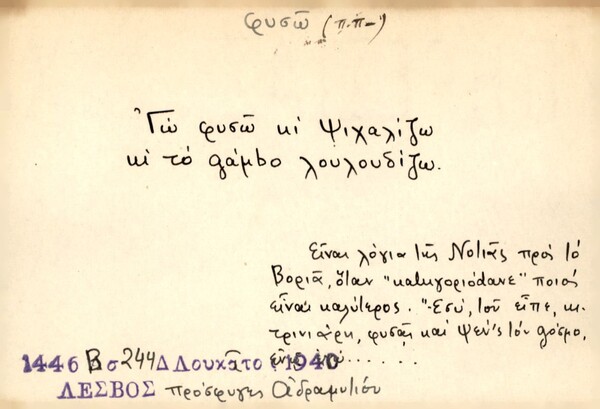 φυσῶ (π.π-)
Ἰγὼ φυσῶ κὶ ψιχαλίζω
κὶ τὸ θάμbο λουλουδίζω.
Εἶναι λόγια τῆς Νοτιᾶς πρὸς τὸ
Βοριᾶ, ὅταν "κατηγοριόdανε" ποιός
εἶναι καλύτερος. "-Ἐσύ, τοῦ εἶπε, κι-
τρινιάρη, φυσᾷς καὶ ψέν'ς τὸν κόσμο,
ἐνῶ ἐγὼ......
1446 Β σ 244 Δ Λουκᾶτος 1940
ΛΕΣΒΟΣ πρόσφυγες Ἀδραμυτίου